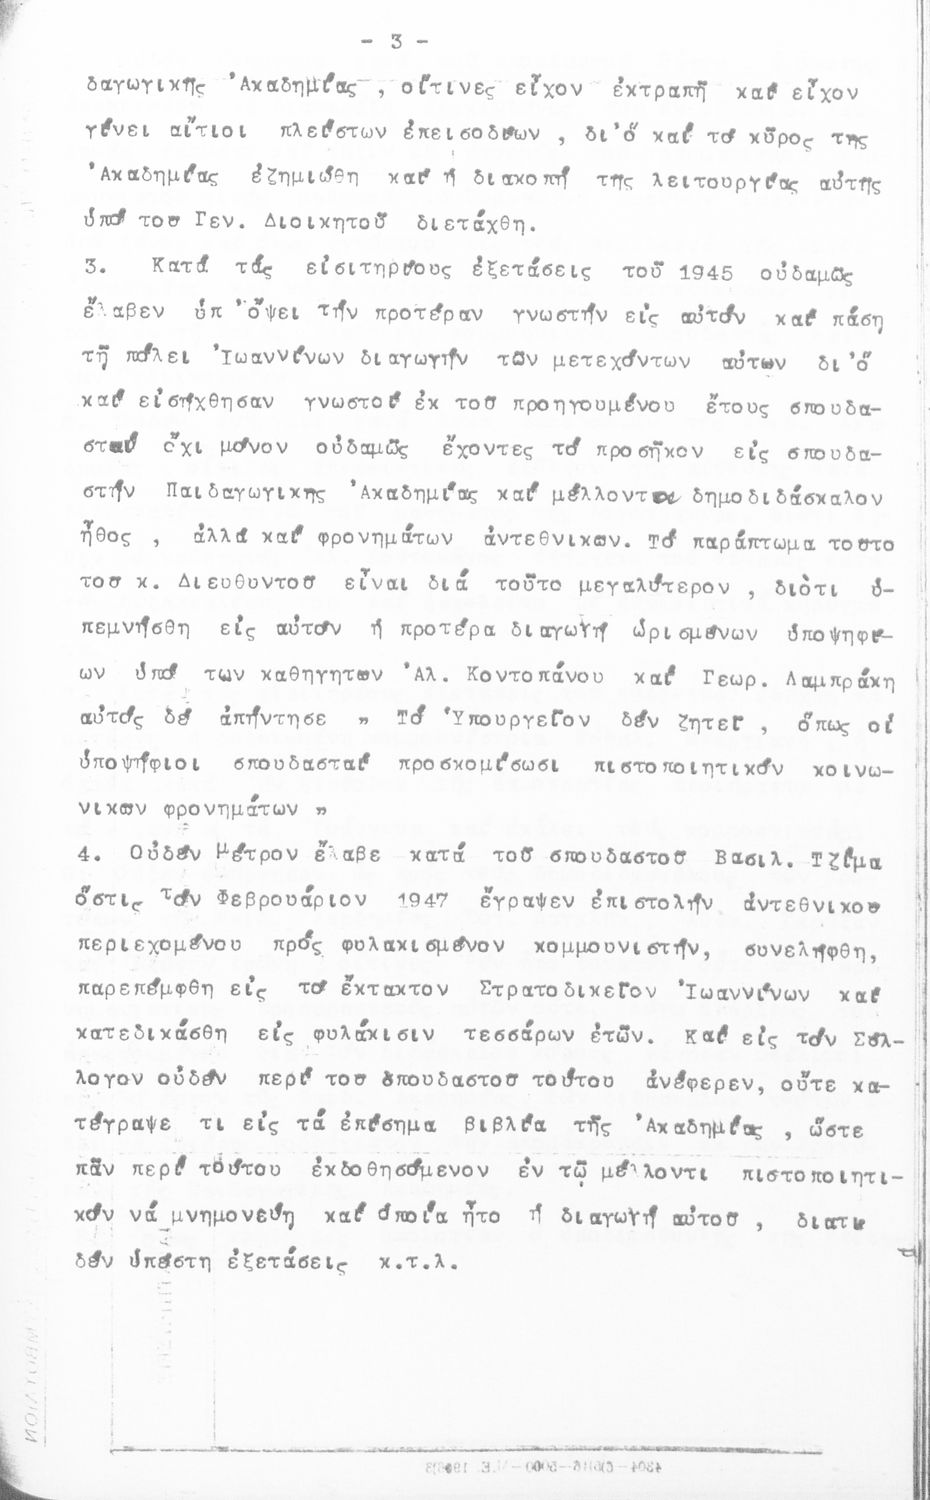 - 3 -
δαγωγικῆς Ἀκαδημίας , οἵτινες εἶχον ἐκτραπῆ καί εἶχον
γίνει αἴτιοι πλείστων ἐπεισοδίων , δι'ὅ καί τό κῦρος τῆς
Ἀκαδημίας ἐζημιώθη καί ἡ διακοπή τῆς λειτουργίας αὐτῆς
ὑπό τοῦ Γεν. Διοικητοῦ διετάχθη.
3. Κατά τάς εἰσιτηρίους ἐξετάσεις τοῦ 1945 οὐδαμῶς
ἔλαβεν ὑπ 'ὄψει τήν προτέραν γνωστήν εἰς αὐτόν καί πάση
τῇ πόλει Ἰωαννίνων διαγωγήν τῶν μετεχόντων αὐτῶν δι'ὅ
καί εἰσήχθησαν γνωστοί ἐκ τοῦ προηγουμένου ἔτους σπουδα-
σταί ὄχι μόνον οὐδαμῶς ἔχοντες τό προσῆκον εἰς σπουδα-
στήν Παιδαγωγικῆς Ἀκαδημίας καί μέλλοντα δημοδιδάσκαλον
ἦθος , ἀλλά καί φρονημάτων ἀντεθνικῶν. Τό παράπτωμα τοῦτο
τοῦ κ. Διευθυντοῦ εἶναι διά τοῦτο μεγαλύτερον , διότι ὑ-
πεμνήσθη εἰς αὐτόν ἡ προτέρα διαγωγή ὡρισμένων ὑποψηφί-
ων ὑπό τῶν καθηγητῶν Ἀλ. Κοντοπάνου καί Γεωρ. Λαμπράκη
αὐτός δέ ἀπήντησε „ Τό Ὑπουργεῖον δέν ζητεῖ , ὅπως οἱ
ὑποψήφιοι σπουδασταί προσκομίσωσι πιστοποιητικόν κοινω-
νικῶν φρονημάτων „
4. Οὐδέν μέτρον ἔλαβε κατά τοῦ σπουδαστοῦ Βασιλ. Τζίμα
ὅστις τόν Φεβρουάριον 1947 ἔγραψεν ἐπιστολήν ἀντεθνικοῦ
περιεχομένου πρός φυλακισμένον κομμουνιστήν, συνελήφθη,
παρεπέμφθη εἰς τό ἔκτακτον Στρατοδικεῖον Ἰωαννίνων καί
κατεδικάσθη εἰς φυλάκισιν τεσσάρων ἐτῶν. Καί εἰς τόν Σύλ-
λογον οὐδέν περί τοῦ σπουδαστοῦ τούτου ἀνέφερεν, οὔτε κα-
τέγραψε τι εἰς τά ἐπίσημα βιβλία τῆς Ἀκαδημίας , ὥστε
πᾶν περί τούτου ἐκδοθησόμενον ἐν τῷ μέλλοντι πιστοποιητι-
κόν νά μνημονεύῃ καί ὁποία ἦτο ἡ διαγωγή αὐτοῦ , διατί
δέν ὑπέστη ἐξετάσεις κ.τ.λ.